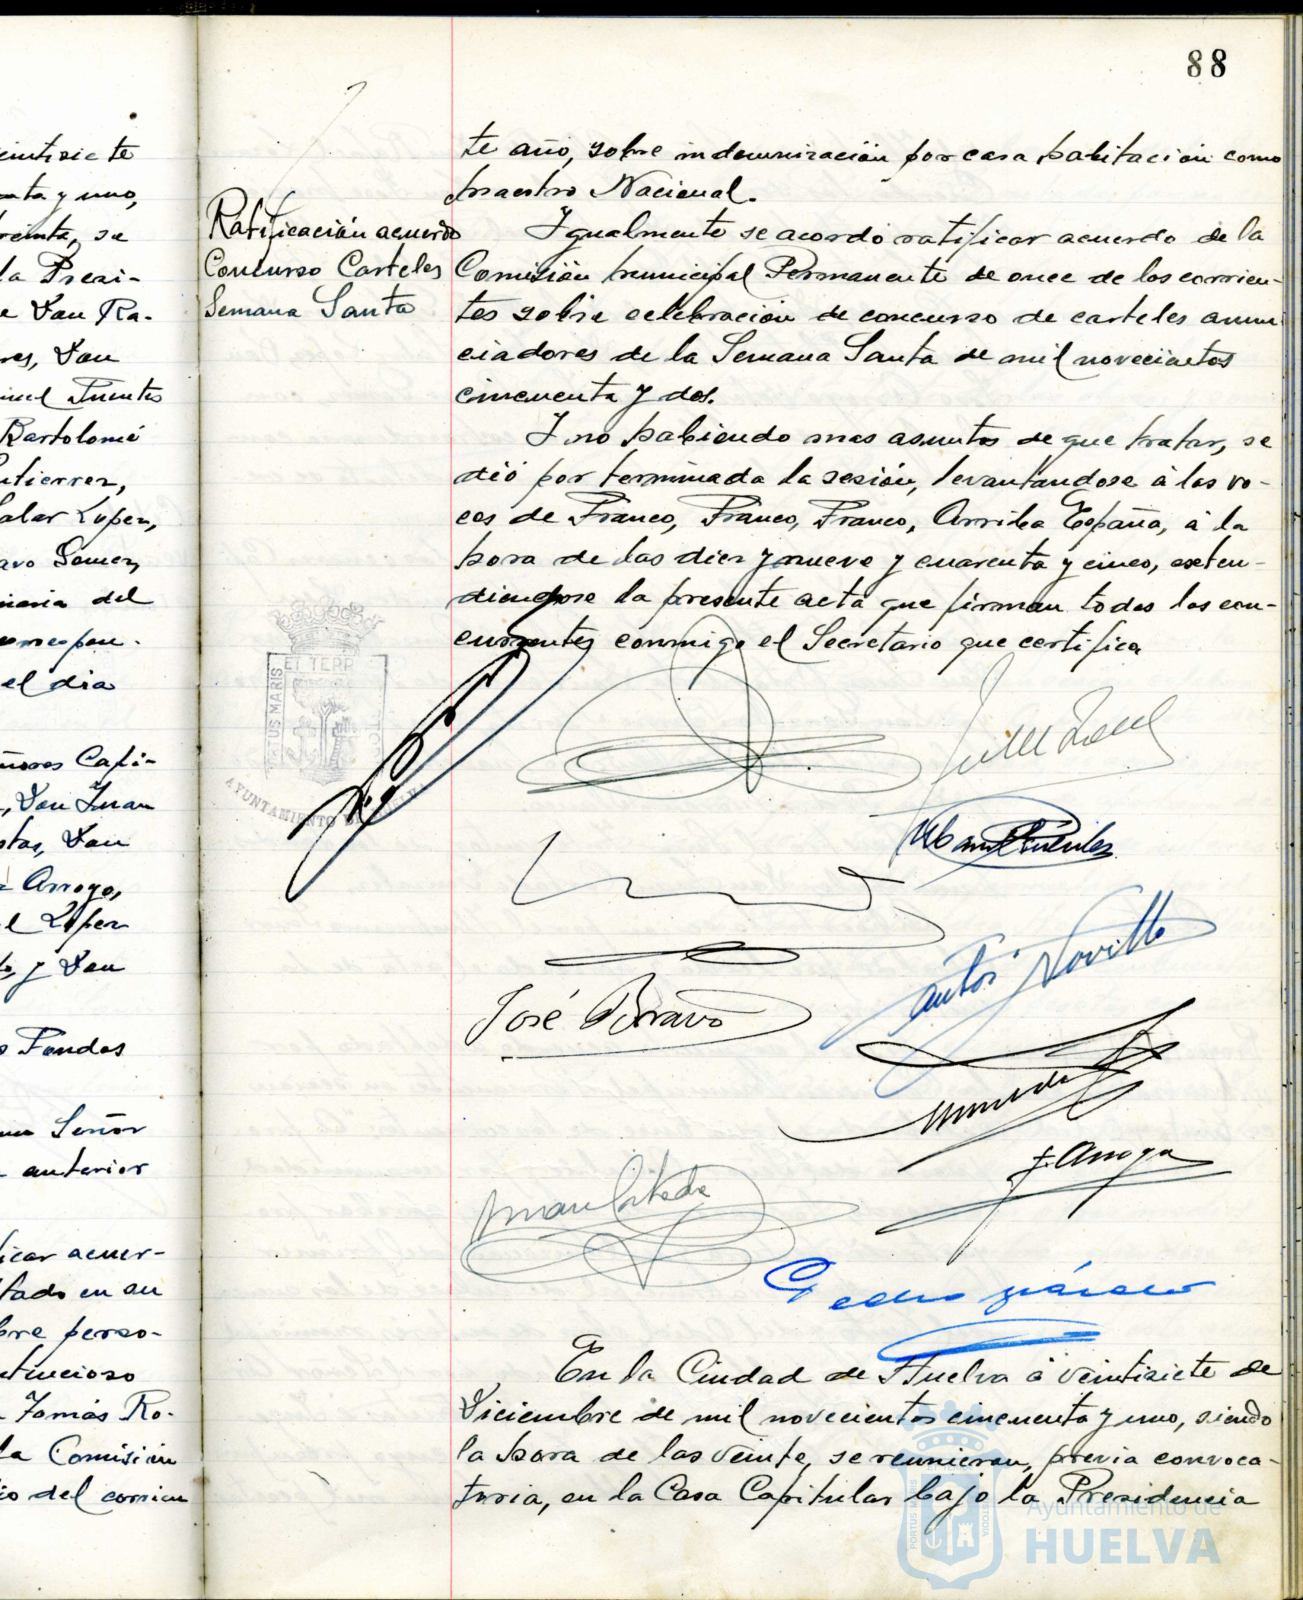 88
eintisiete
nta y uno,
treinta, se
la Presi-
e Don Ra-
res, Don
nuel Fuentes
Bartolomé
Gutierrez,
alar Lopez,
avo Gomez,
naria del
correspon-
el dia
ñores Capi-
, Don Juan
stas, Don
Arroyo,
el Lopez
y Don
o Fondos
Señor
anterior
ficar acuer-
tado en su
bre perso-
ntencioso
Tomás Ro-
la Comisión
io del corrien
Ratificación acuerdo
Concurso Carteles
Semana Santa
te año, sobre indemnización por casa habitación como
maestro Nacional.
Igualmente se acordó ratificar acuerdo de la
Comisión municipal Permanente de once de los corrien-
tes sobre celebración de concurso de carteles anun
ciadores de la Semana Santa de mil novecientos
cincuenta y dos.
Y no habiendo mas asuntos de que tratar, se
dió por terminada la sesión, levantandose á las vo-
ces de Franco, Franco, Franco, Arriba España, á la
hora de las diez y nueve y cuarenta y cinco, exten-
diendose la presente acta que firman todos los con-
currentes conmigo el Secretario que certifica
PORTUS MARIS
ET TERR
AYUNTAMIENTO DE
José Bravo
J. Arroyo
En la Ciudad de Huelva á veintisiete de
Diciembre de mil novecientos cincuenta y uno, siendo
la hora de las veinte, se reunieron, previa convoca-
toria, en la Casa Capitular bajo la Presidencia
Ayuntamiento de
HUELVA